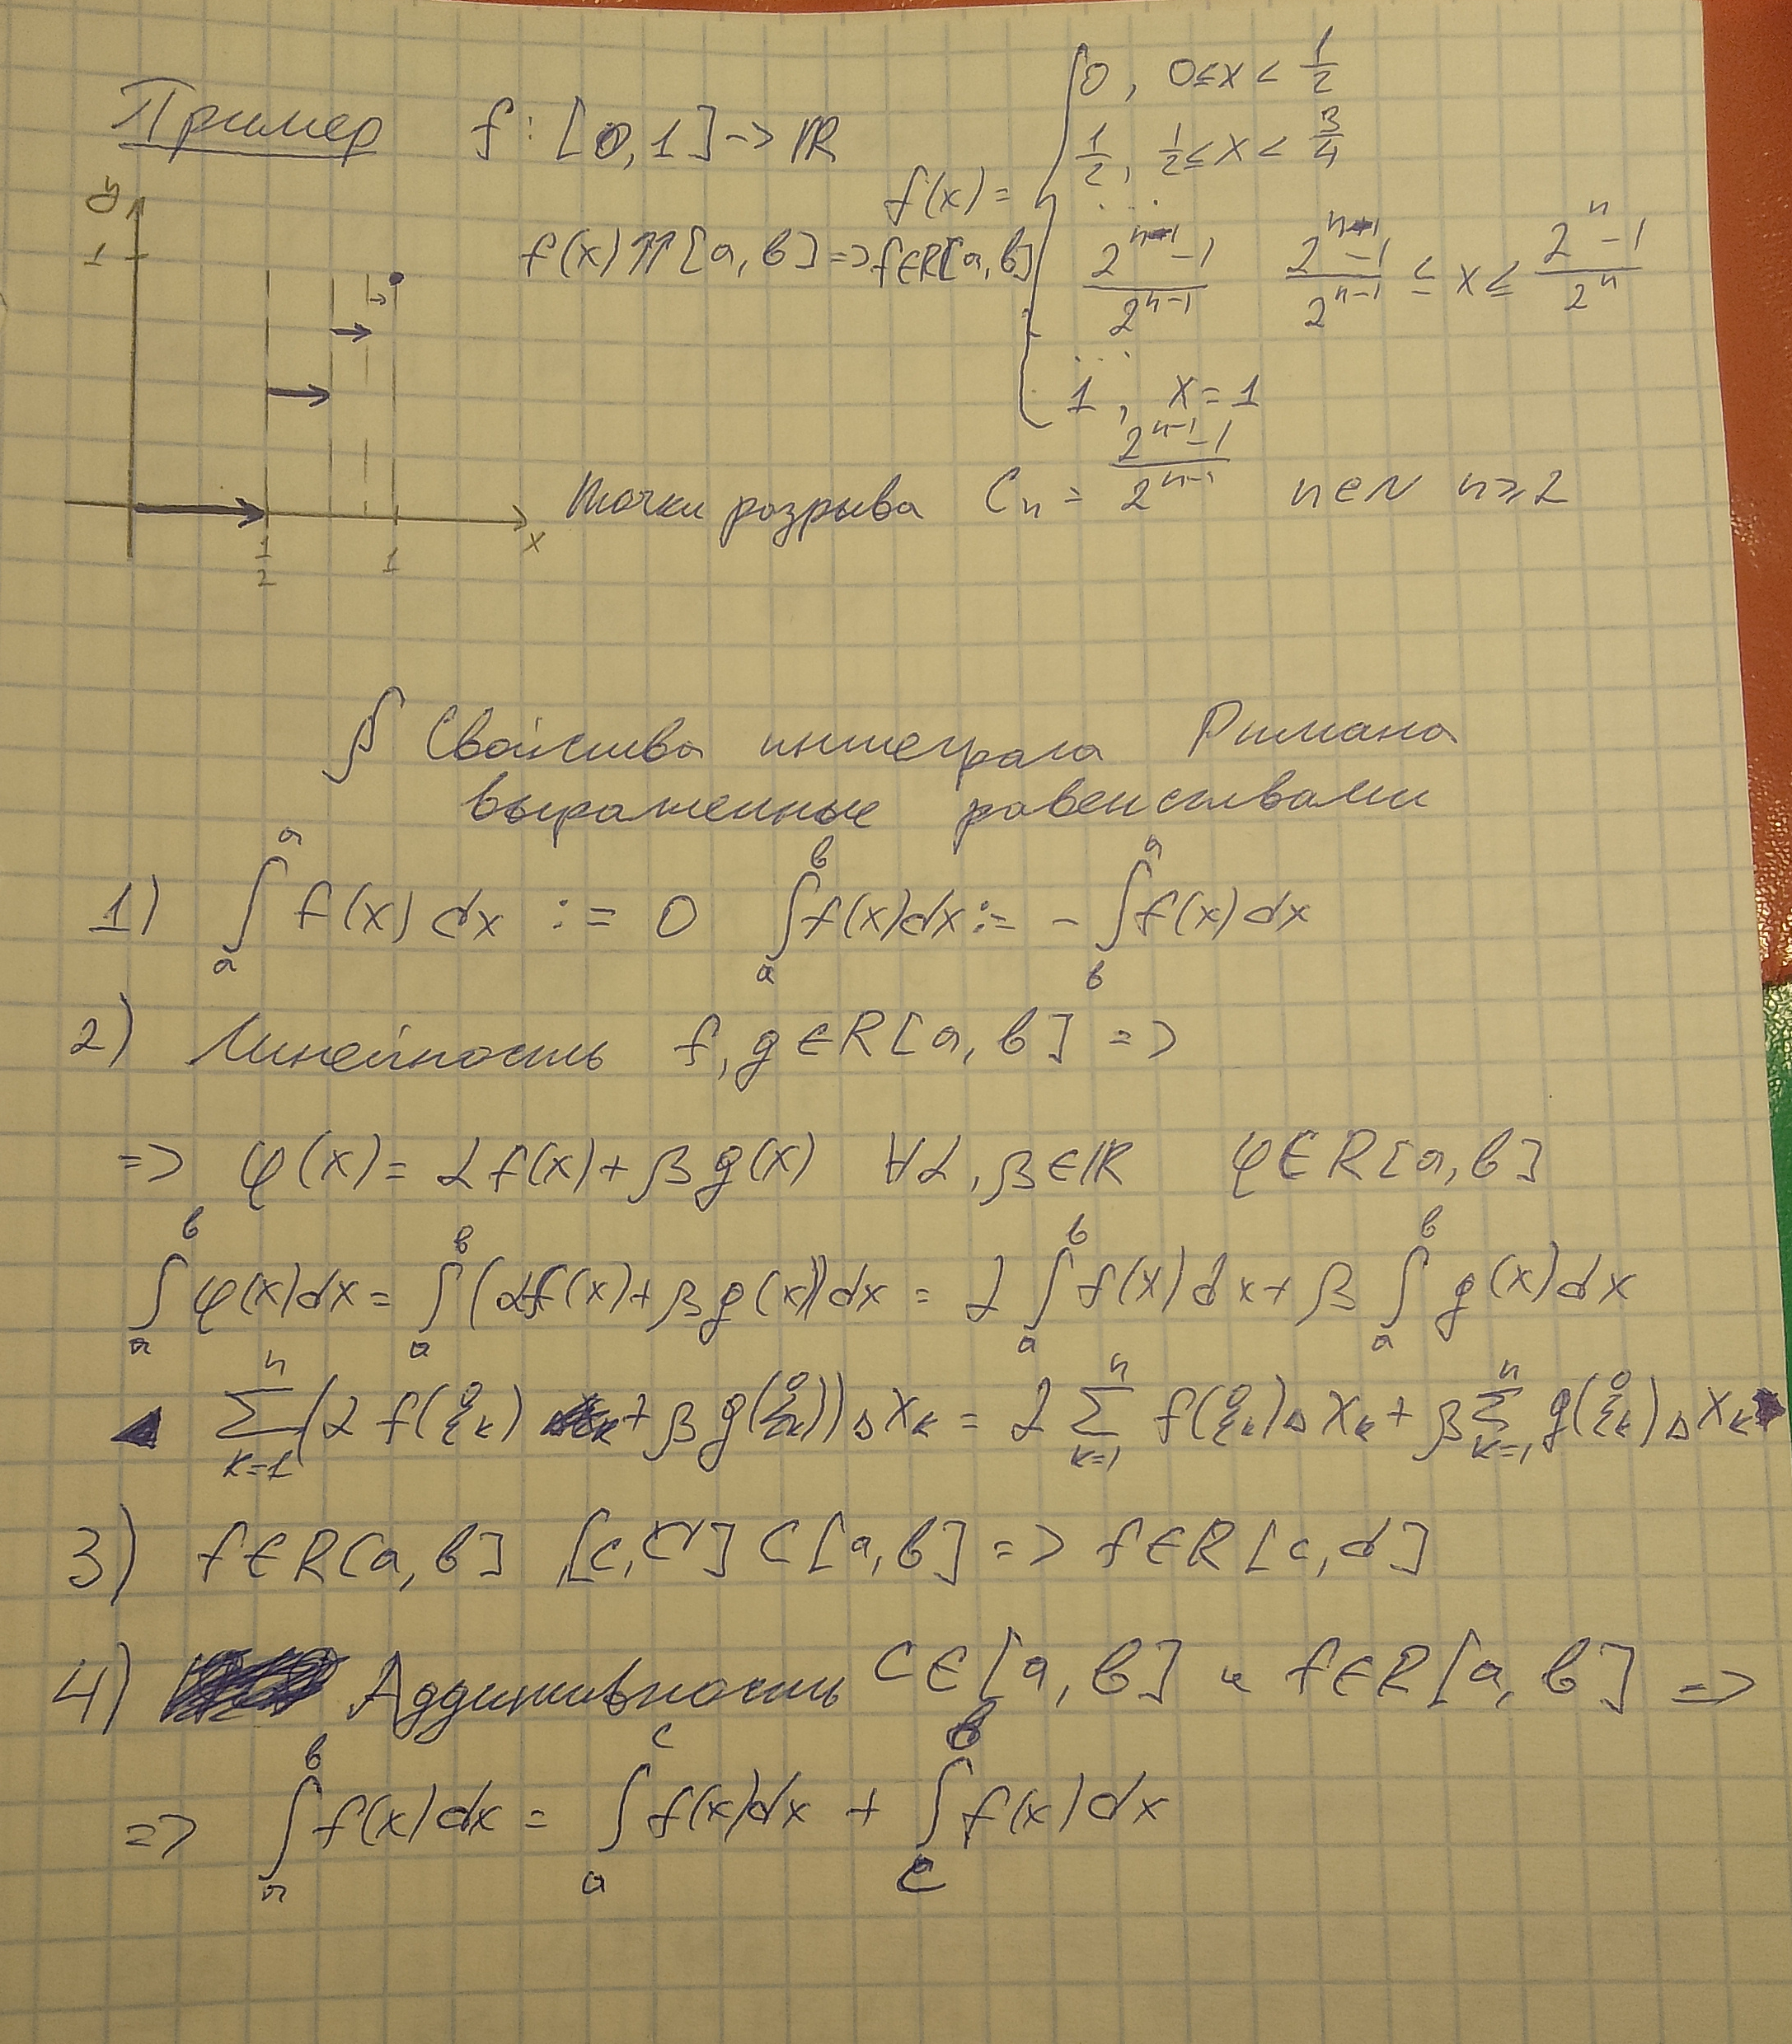 Пример f : [0, 1] -> ℝ
f(x) = { 0, 0 ≤ x < 1/2
1/2, 1/2 ≤ x < 3/4
...
(2^(n-1) - 1)/2^(n-1) (2^(n-1) - 1)/2^(n-1) ≤ x ≤ (2^n - 1)/2^n
...
1, x = 1
f(x) ⇈ [a, b] => f∈R[a, b]
y
1
1/2 1 x
точки розрыва Cn = (2^(n-1) - 1)/2^(n-1) n∈N n ≥ 2
§ Свойства интеграла Римана
выраженные равенствами
1) ∫_a^a f(x) dx := 0 ∫_a^b f(x)dx := - ∫_b^a f(x) dx
2) Линейность f, g ∈ R[a, b] =>
=> φ(x) = αf(x) + βg(x) ∀α, β ∈ ℝ φ∈R[a, b]
∫_a^b φ(x)dx = ∫_a^b (αf(x) + βg(x))dx = α ∫_a^b f(x)dx + β ∫_a^b g(x)dx
◢ ∑_{k=1}^n (α f(ξ°_k) + β g(ξ°_k)) Δx_k = α ∑_{k=1}^n f(ξ°_k) Δx_k + β ∑_{k=1}^n g(ξ°_k) Δx_k
3) f∈R[a, b] [c, d] ⊂ [a, b] => f∈R[c, d]
4) Аддитивность C∈[a, b] и f∈R[a, b] =>
=> ∫_a^b f(x)dx = ∫_a^c f(x)dx + ∫_c^b f(x)dx